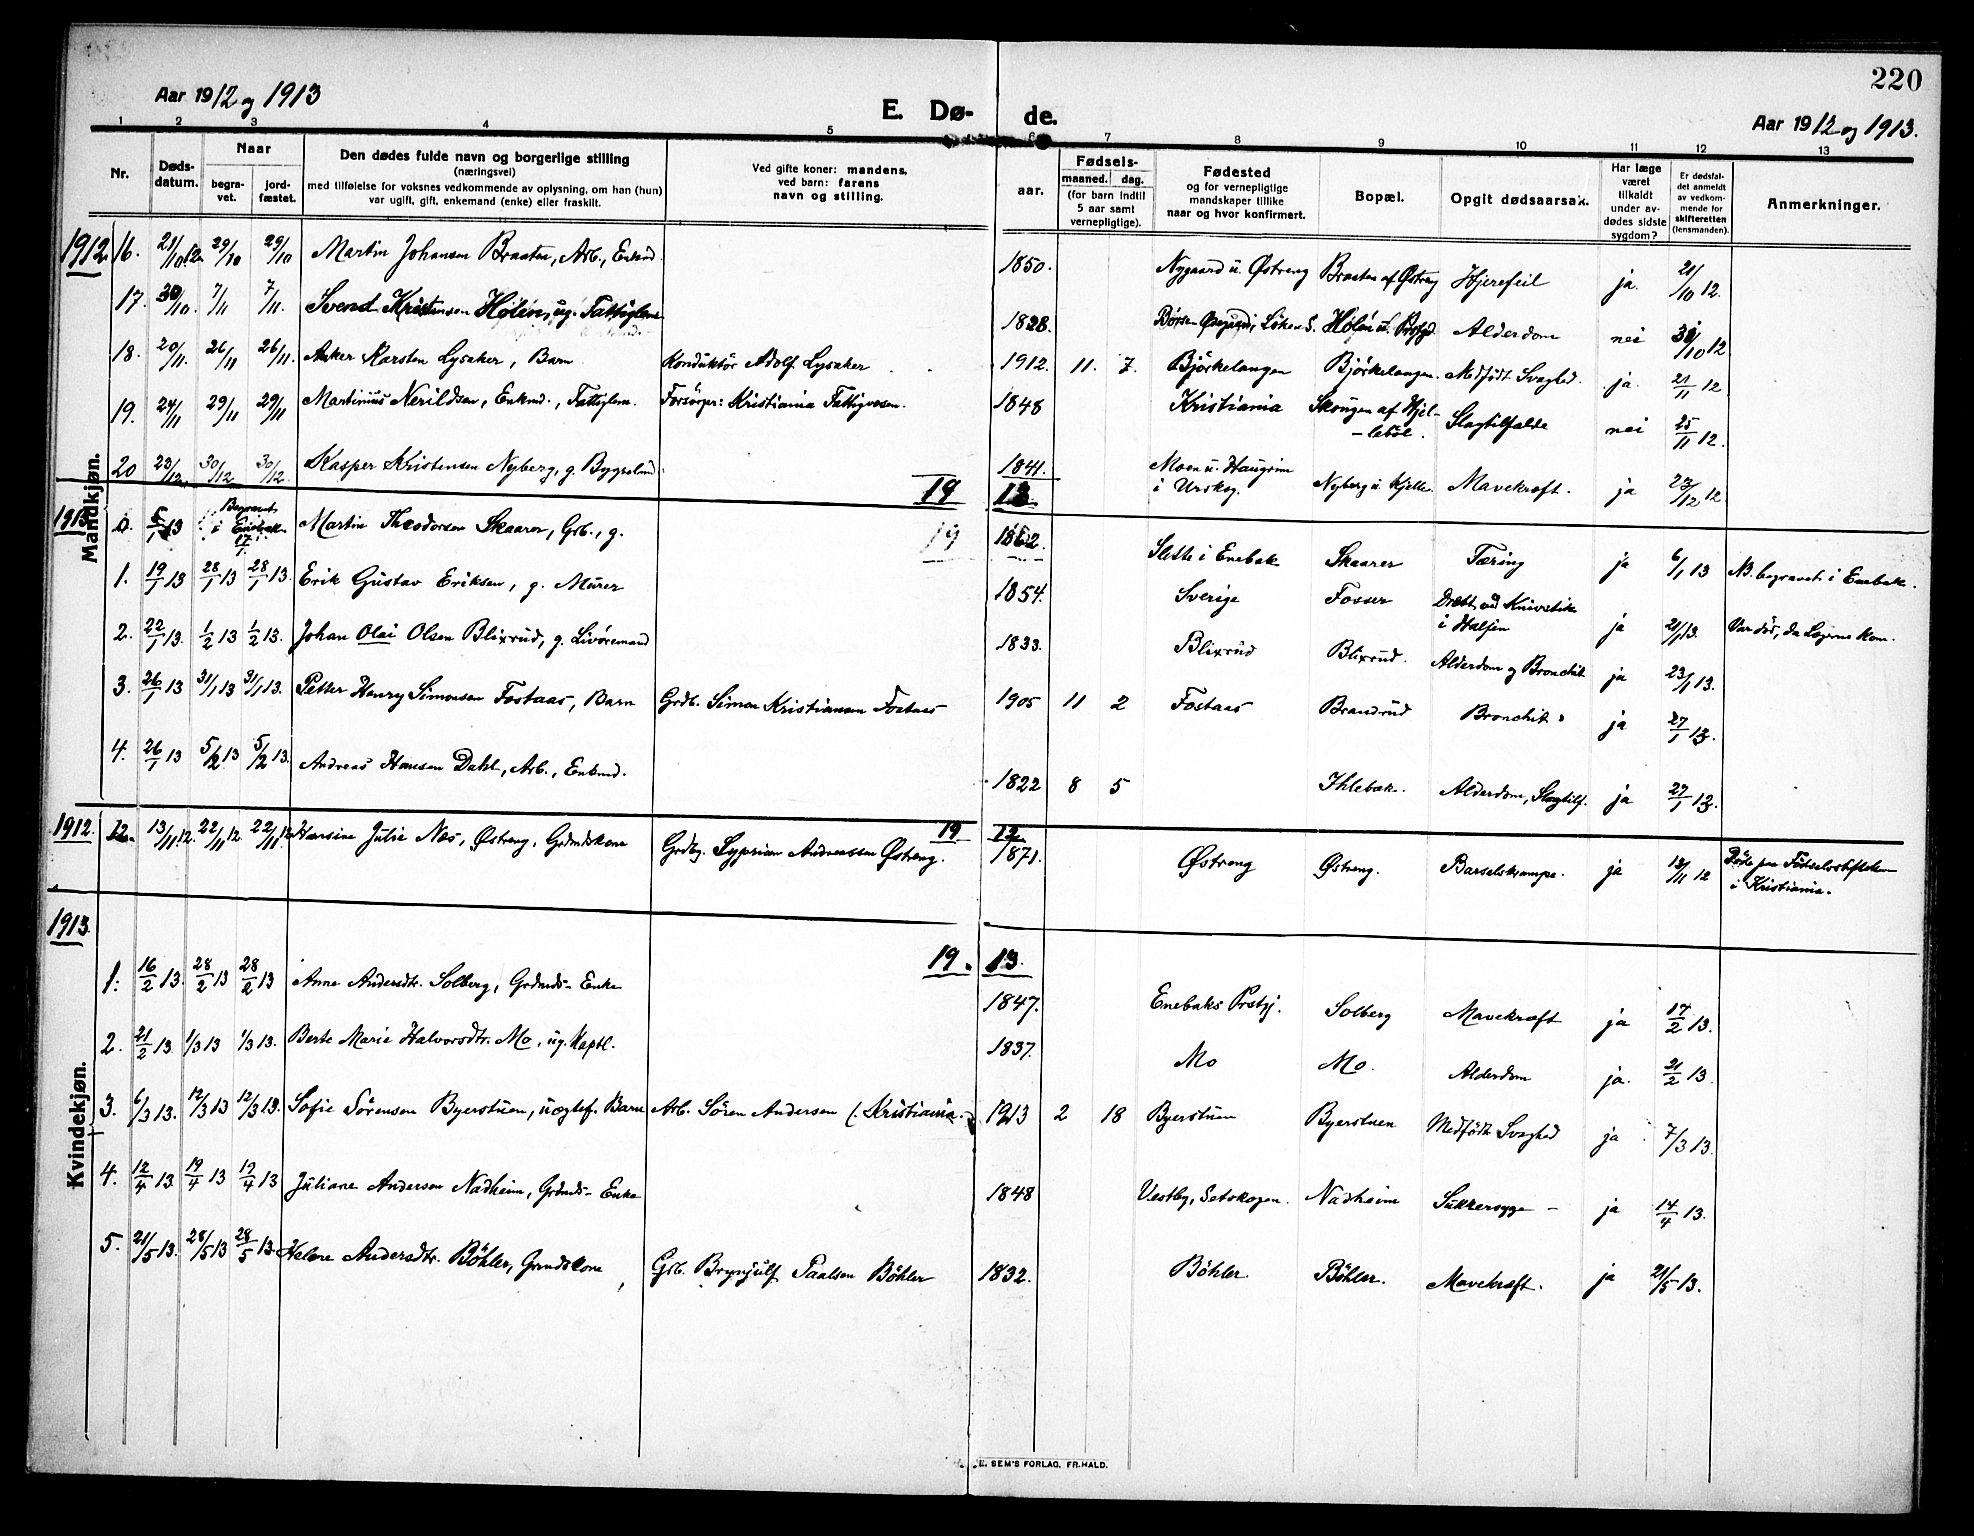 220
Aar 1912 og 1913
E. Dø- de.
Aar 1912 og 1913.
1 2 3 4 5 6 7 8 9 10 11 12 13
Nr.
Døds-
datum.
Naar
begra-
vet.
jord-
fæstet.
Den dødes fulde navn og borgerlige stilling
(næringsvei)
med tilføielse for voksnes vedkommende av oplysning, om han (hun)
var ugift, gift, enkemand (enke) eller fraskilt.
Ved gifte koner: mandens,
ved barn: farens
navn og stilling.
aar.
Fødsels-
maaned. dag.
(for barn indtil
5 aar samt
vernepligtige).
Fødested
og for vernepligtige
mandskaper tillike
naar og hvor konfirmert.
Bopæl.
Opgit dødsaarsak.
Har læge
været
tilkaldt
under av-
dødes sidste
sygdom?
Er dødsfal-
det anmeldt
av vedkom-
mende for
skifteretten
(lensmanden).
Anmerkninger.
Mandkjøn.
1912. 16. 21/10 12. 29/10 29/10 Martin Johansen Braaten, Arb., Enkmd. 1850. Nygaard u. Østreng Braaten af Østreng Hjerefeil ja. 21/10 12.
17. 30/10. 7/11 7/11. Svend Kristensen Hølen, ug. Fattiglem 1828. Hølen u. Alderdom nei 30/10 12
18. 20/11. 26/11 26/11. Anker Karsten Lysaker, Barn Konduktör Adolf Lysaker 1912. 11. 7. Bjórkelangen Bjórkelangen. Medfödt Svaghed. ja. 21/11 12.
19. 24/11 29/11 29/11 Martinius Nerildsen, Enkmd., Fattiglem. Forsörger: Kristiania Fattigvæsen. 1848 Kristiania Skougen af Hjel-
-leböl. Slagtilfælde nei 25/11 12.
20 23/12. 30/12 30/12. Kasper Kristensen Nyberg, g. Bygselmd. 1841. Moen u. Haugrim
i Urskog. Nyberg u. Kjelle. Mavekræft. ja 27/12 12
1913. 19 13.
0. 5/1 13 Begravet
i Enebak
17/1. Martin Theodorsen Skaarer, Grb., g. 1862. Slette i Enebak Skaarer Tæring ja 6/1 13 NB. begravet i Enebak.
1. 19/1 13 28/1 13 28/1 13. Erik Gustav Eriksen, g. Murer 1854. Sverige Fosser Dræbt ved Knivstik
i Halsen ja 21/1 13. Var död, da Lægerne kom.
2. 22/1 13. 1/2 13 1/2 13. Johan Olai Olsen Blixrud, g. Livöremand 1833. Blixrud Blixrud. Alderdom og Bronchit ja 23/1 13.
3. 26/1 13 31/1 13 31/1 13. Petter Henry Simonsen Fostaas, Barn Grdb. Simen Kristiansen Fostaas 1905 11 2 Fostaas Brandrud Bronchit ja 27/1 13.
4. 26/1 13 5/2 13 5/2 13. Andreas Hansen Dahl, Arb., Enkmd. 1822 8 5 Ihlebæk. Alderdom, Slagtilf. ja 27/1 13.
1912. 19 12
12. 13/11 12. 22/11 12. 22/11 12 Julie Næs, Østreng, Grdmdskone Grdbg. Syprian Andreassen Østreng. 1871. Østreng Østreng. Barselskrampe. ja 13/11 12 Döde paa Födselsstiftelsen
i Kristiania.
1913. 19. 13.
Kvindekjøn.
1. 16/2 13. 28/2 13 28/2 13 Anne Andersdtr. Solberg, Grdmds- Enke 1847. Enebaks Prstgj. Solberg Mavekræft ja 17/2 13.
2. 21/2 13. 1/3 13 1/3 13. Berte Marie Halvorsdtr. Mo, ug. Kaptl. 1837. Mo Mo. Alderdom ja. 21/2 13.
3. 6/3 13. 12/3 13 12/3 13. Sofie Sörensen Byerstuen, uægtef. Barn Arb. Sören Andersen (Kristiania.) 1913 2 18 Byerstuen Byerstuen Medfödt Svaghed ja 7/3 13.
4. 12/4 13. 19/4 13 19/4 13 Juliane Andersen Nadheim, Grdmds- Enke 1848 Vestby, Setskogen. Nadheim Sukkersyge - ja 14/4 13.
5. 21/5 13. 28/5 13 28/5 13. Helene Andersdtr. Böhler, Grmdskone Grb. Brynjulf Paalsen Böhler 1832. Böhler. Böhler. Mavekræft. ja 21/5 13.
E. SEM'S FORLAG, FR.HALD.